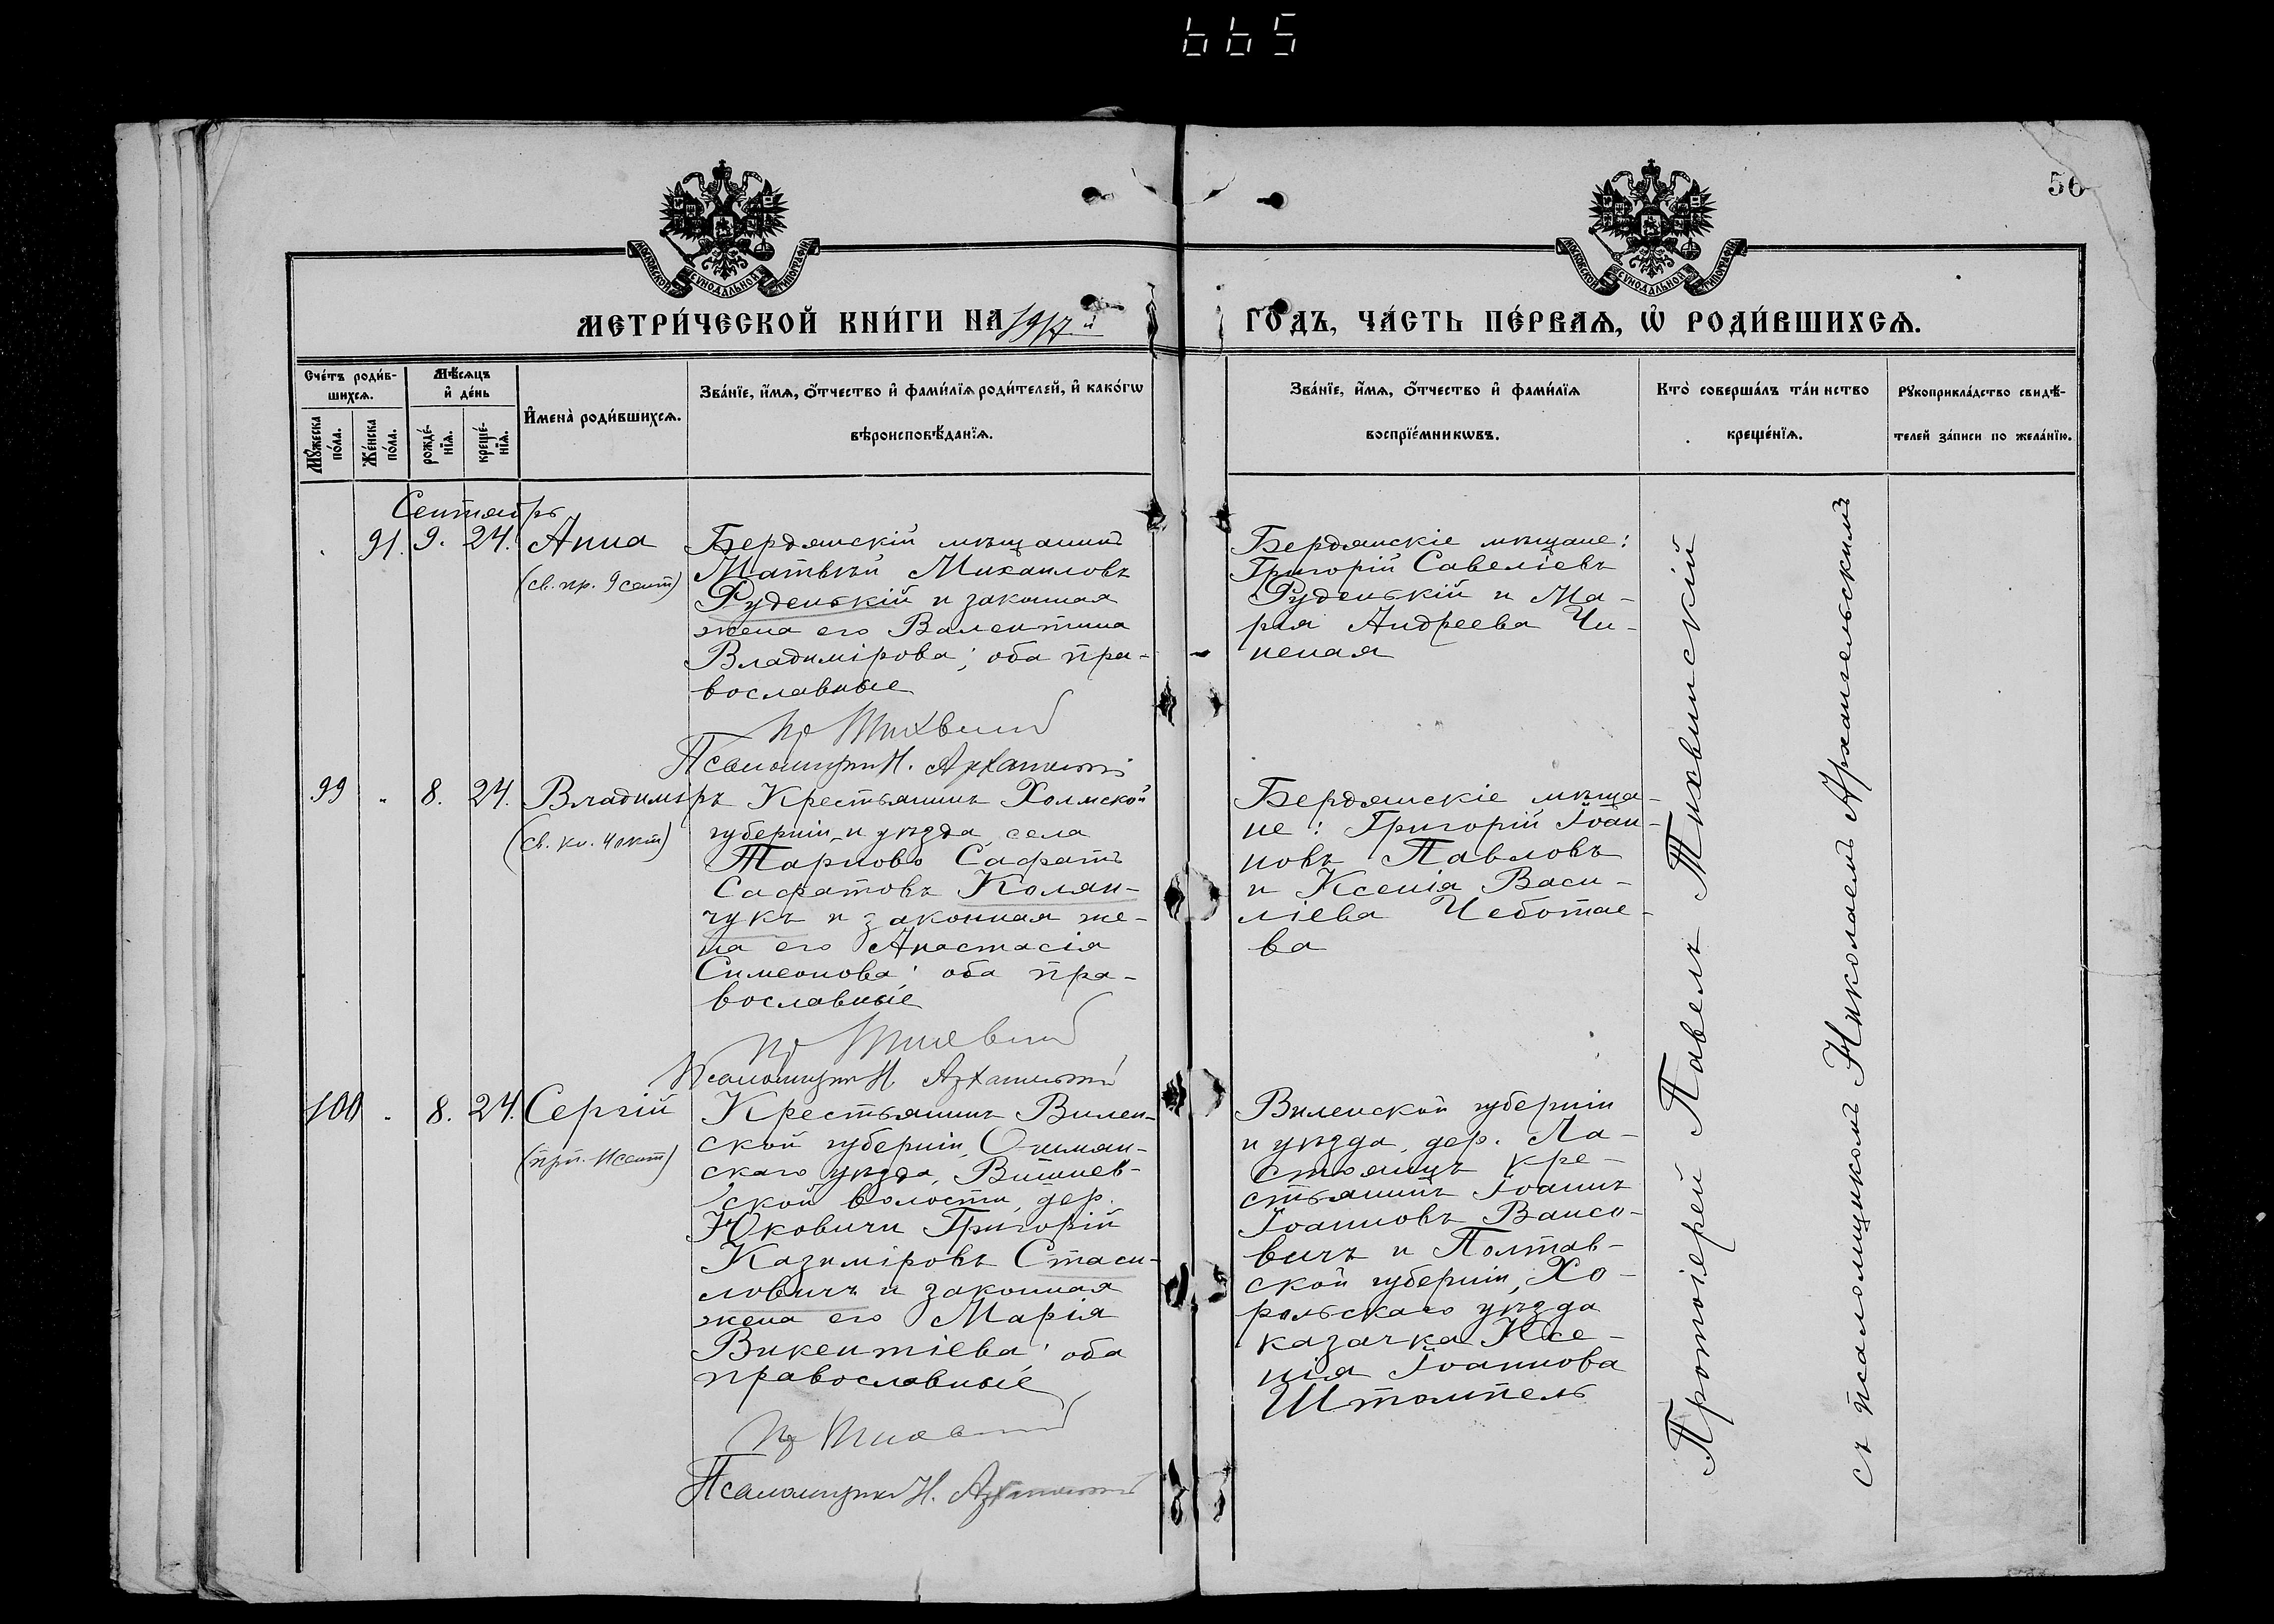 665
56
МОСКОВСКОЙ СѴНОДАЛЬНОЙ ТИПОГРАФІИ
МОСКОВСКОЙ СѴНОДАЛЬНОЙ ТИПОГРАФІИ
МЕТРИ́ЧЕСКОЙ КНИ́ГИ НА 1917й
ГО́ДЪ, ЧА́СТЬ ПЕ́РВАѦ, Ѡ҆ РОДИ́ВШИХСѦ.
Сче́тъ роди́в-
шихсѧ.
Мꙋ́жеска по́ла.
Же́нска по́ла.
Мѣ́сѧцъ
и҆ де́нь
рожде́-
нїѧ.
креще́-
нїѧ.
И҆мена̀ роди́вшихсѧ.
Зва́нїе, и҆́мѧ, ѻ҆́тчество и҆ фами́лїѧ роди́телей, и҆ како́гѡ
вѣроисповѣ́данїѧ.
Зва́нїе, и҆́мѧ, ѻ҆́тчество и҆ фами́лїѧ
воспрїе́мникѡвъ.
Кто̀ соверша́лъ та́инство
креще́нїѧ.
Рꙋкоприкла́дство свидѣ́-
телей за́писи по жела́нїю.
Сентябрь
91. 9. 24. Анна
(св. пр. 9 сент)
Бердянскій мѣщанинъ
Матвѣй Михаиловъ
Руденькій и законная
жена его Валентина
Владимірова; оба пра-
вославные
Пр Тихвинскій
Псаломщикъ Н. Архангельскій
Бердянскіе мѣщане:
Григорій Савеліевъ
Руденькій и Ма-
рія Андреева Чи-
неная
99 " 8. 24. Владиміръ
(св. кн. 4 окт)
Крестьянинъ Холмской
губерніи и уѣзда, села
Тарново Сафатъ
Сафатовъ Колян-
чукъ и законная же-
на его Анастасія
Симеонова; оба пра-
вославные
Пр Тихвинскій
Псаломщикъ Н. Архангельскій
Бердянскіе мѣща-
не: Григорій Іоан-
новъ Павловъ
и Ксенія Васи-
ліева Чеботае-
ва
100 " 8. 24. Сергій
Крестьянинъ Вилен-
ской губерніи, Ошмян-
скаго уѣзда, Вишнев-
ской волости, дер.
Юковичи Григорій
Казиміровъ Стаси-
ловичъ и законная
жена его Марія
Викентіева; оба
православные
Пр Тихвинскій
Псаломщикъ Н. Архангельскій
Виленской губерніи
и уѣзда, дер. Ла-
стоянцъ кре-
стьянинъ Іоаннъ
Іоанновъ Вансо-
вичъ и Полтав-
ской губерніи, Хо-
рольскаго уѣзда
казачка Ксе-
нія Іоаннова
Штомпель
Протоіерей Павелъ Тихвинскій
съ псаломщикомъ Николаемъ Архангельскимъ